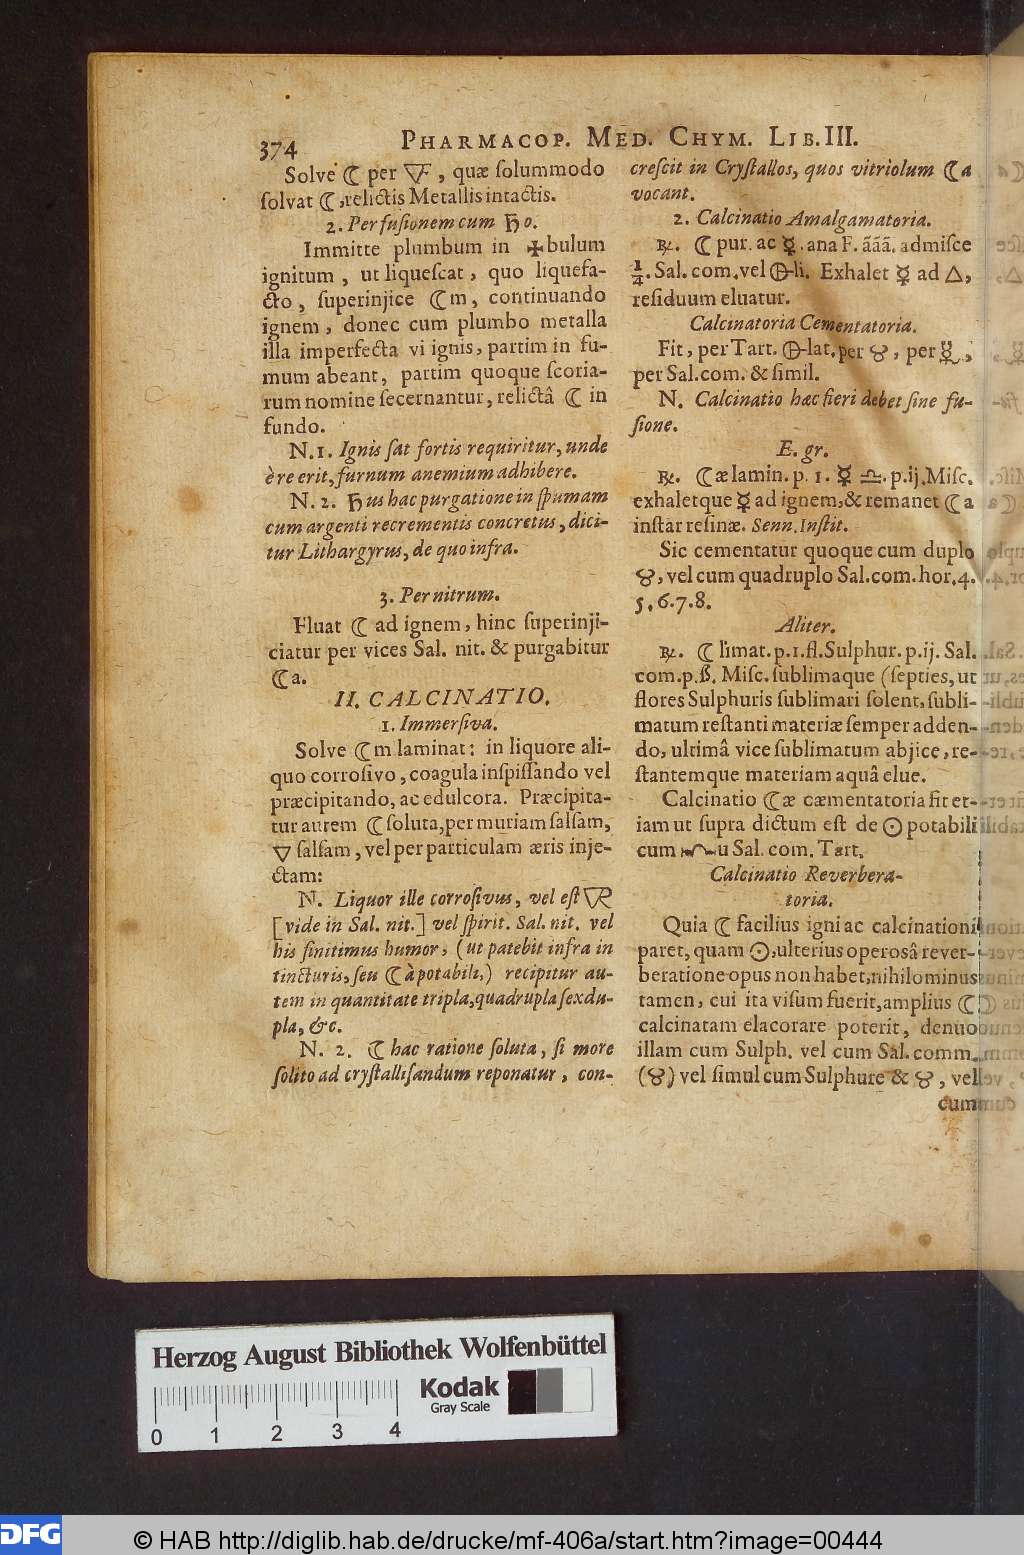 374
PHARMACOP. MED. CHYM. LIB. III.
Solve ☾ per 🜅, quæ ſolummodo
ſolvat ☾, relictis Metallis intactis.
2. Per fuſionem cum ♄o.
Immitte plumbum in 🝧bulum
ignitum, ut liqueſcat, quo liquefa-
cto, ſuperinjice ☾m, continuando
ignem, donec cum plumbo metalla
illa imperfecta vi ignis, partim in fu-
mum abeant, partim quoque ſcoria-
rum nomine ſecernantur, relictâ ☾ in
fundo.
N. 1. Ignis ſat fortis requiritur, unde
è re erit, furnum anemium adhibere.
N. 2. ♄us hac purgatione in ſpumam
cum argenti recrementis concretus, dici-
tur Lithargyrus, de quo infra.
3. Per nitrum.
Fluat ☾ ad ignem, hinc ſuperinji-
ciatur per vices Sal. nit. & purgabitur
☾a.
II. CALCINATIO.
1. Immerſiva.
Solve ☾m laminat: in liquore ali-
quo corroſivo, coagula inſpiſſando vel
præcipitando, ac edulcora. Præcipita-
tur autem ☾ ſoluta, per muriam ſalſam,
▽ ſalſam, vel per particulam æris inje-
ctam:
N. Liquor ille corroſivus, vel eſt 🜆
[vide in Sal. nit.] vel ſpirit. Sal. nit. vel
his finitimus humor, (ut patebit infra in
tincturis, ſeu ☾â potabili,) recipitur au-
tem in quantitate tripla, quadrupla ſexdu-
pla, &c.
N. 2. ☾ hac ratione ſoluta, ſi more
ſolito ad cryſtalliſandum reponatur, con-
creſcit in Cryſtallos, quos vitriolum ☾a
vocant.
2. Calcinatio Amalgamatoria.
℞. ☾ pur. ac ☿. ana F. ããã. admiſce
¼. Sal. com. vel 🜖li. Exhalet ☿ ad △,
reſiduum eluatur.
Calcinatoria Cementatoria.
Fit, per Tart. 🜖lat. per ♉, per
per Sal. com. & ſimil.
N. Calcinatio hæc fieri debet ſine fu-
ſione.
E. gr.
℞. ☾æ lamin. p. 1. ☿ ♎. p. ij. Miſc.
exhaletque ☿ ad ignem, & remanet ☾a
inſtar reſinæ. Senn. Inſtit.
Sic cementatur quoque cum duplo
♉, vel cum quadruplo Sal. com. hor. 4.
5. 6. 7. 8.
Aliter.
℞. ☾ limat. p. 1. fl. Sulphur. p. ij. Sal.
com. p. ß. Miſc. ſublimaque (ſepties, ut
flores Sulphuris ſublimari ſolent, ſubli-
matum reſtanti materiæ ſemper adden-
do, ultimâ vice ſublimatum abjice, re-
ſtantemque materiam aquâ elue.
Calcinatio ☾æ cæmentatoria fit et-
iam ut ſupra dictum eſt de ☉ potabili
cum u Sal. com. Tart.
Calcinatio Reverbera-
toria.
Quia ☾ facilius igni ac calcinationi
paret, quam ☉, ulterius operosâ rever-
beratione opus non habet, nihilominus
tamen, cui ita viſum fuerit, amplius ☾
calcinatam elacorare poterit, denuo
illam cum Sulph. vel cum Sal. comm.
(♉) vel ſimul cum Sulphure & ♉, vel
cum
Herzog August Bibliothek Wolfenbüttel
Kodak
Gray Scale
0 1 2 3 4
DFG
© HAB http://diglib.hab.de/drucke/mf-406a/start.htm?image=00444